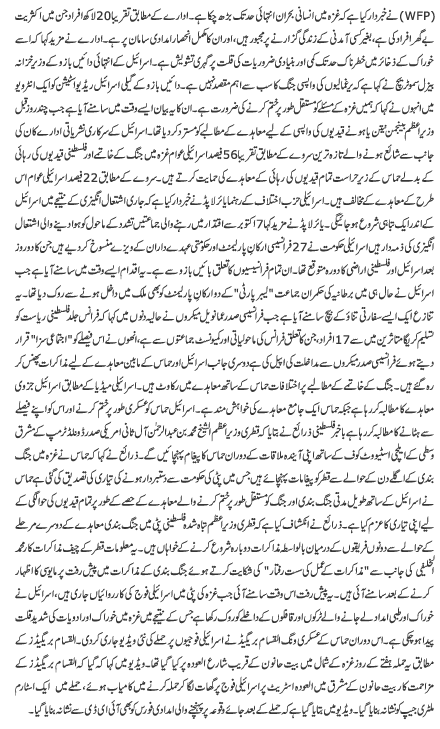 (WFP) نے خبردار کیا ہے کہ غزہ میں انسانی بحران انتہائی حد تک بڑھ چکا ہے۔ ادارے کے مطابق تقریباً 20 لاکھ افراد جن میں اکثریت
بے گھر افراد کی ہے، بغیر کسی آمدنی کے زندگی گزارنے پر مجبور ہیں، اور ان کا مکمل انحصار امدادی سامان پر ہے۔ ادارے نے مزید کہا کہ اسے
خوراک کے ذخائر میں خطرناک حد تک کمی اور بنیادی ضروریات کی قلت پر گہری تشویش ہے۔ اسرائیل کے انتہائی دائیں بازو کے وزیر خزانہ
بیزل سموٹریچ نے کہا ہے کہ یرغمالیوں کی واپسی جنگ کا سب سے اہم مقصد نہیں ہے۔ دائیں بازو کے گیلی اسرائیل ریڈیو اسٹیشن کو ایک انٹرویو
میں انہوں نے کہا کہ ہمیں غزہ کے مسئلے کو مستقل طور پر ختم کرنے کی ضرورت ہے۔ ان کا یہ بیان ایسے وقت میں سامنے آیا ہے جب چند روز قبل
وزیر اعظم بینجمن نیتن یاہو نے قیدیوں کی واپسی کے لیے معاہدے کے مطالبے کو مسترد کر دیا تھا۔ اسرائیل کے سرکاری نشریاتی ادارے کان کی
جانب سے شائع ہونے والے تازہ ترین سروے کے مطابق تقریباً 56 فیصد اسرائیلی عوام غزہ میں جنگ کے خاتمے اور فلسطینی قیدیوں کی رہائی
کے بدلے حماس کے زیر حراست تمام قیدیوں کی رہائی کے معاہدے کی حمایت کرتے ہیں۔ سروے کے مطابق 22 فیصد اسرائیلی عوام اس
طرح کے معاہدے کے مخالف ہیں۔ اسرائیلی حزب اختلاف کے رہنما یائر لاپڈ نے خبردار کیا ہے کہ جاری اشتعال انگیزی کے نتیجے میں اسرائیل
کے اندر ایک تباہی شروع ہو جائیگی۔ یائر لاپڈ نے مزید کہا 7 اکتوبر سے اقتدار میں رہنے والی جماعتیں تشدد کے ماحول کو ہوا دینے والی اشتعال
انگیزی کی ذمہ دار ہیں اسرائیلی حکومت نے 27 فرانسیسی ارکان پارلیمنٹ اور حکومتی عہدے داران کے ویزے منسوخ کر دیے ہیں جن کا دو روز
بعد اسرائیل اور فلسطینی اراضی کا دورہ متوقع تھا۔ ان تمام فرانسیسیوں کا تعلق بائیں بازو سے ہے۔ یہ اقدام ایسے وقت میں سامنے آیا ہے جب
اسرائیل نے حال ہی میں برطانیہ کی حکمران جماعت "لیبر پارٹی" کے دو ارکان پارلیمنٹ کو بھی ملک میں داخل ہونے سے روک دیا تھا۔ یہ
تنازع ایک ایسے سفارتی تناؤ کے بیچ سامنے آیا ہے جب فرانسیسی صدر عمانویل میکروں نے حالیہ دنوں میں کہا کہ فرانس جلد فلسطینی ریاست کو
تسلیم کریگا متاثرین میں سے 17 افراد، جن کا تعلق فرانس کی ماحولیاتی اور کمیونسٹ جماعتوں سے ہے، انھوں نے اس فیصلے کو "اجتماعی سزا" قرار
دیتے ہوئے فرانسیسی صدر میکروں سے مداخلت کی اپیل کی ہے دوسری جانب اسرائیل اور حماس کے مابین معاہدے کے لیے مذاکرات پھنس کر
رہ گئے ہیں۔ جنگ کے خاتمے کے مطالبے پر اختلافات حماس کے ساتھ معاہدے میں رکاوٹ ہیں۔ اسرائیلی میڈیا کے مطابق اسرائیل جزوی
معاہدے کا مطالبہ کر رہا ہے جبکہ حماس ایک جامع معاہدے کی خواہش مند ہے۔ اسرائیل حماس کو عسکری طور پر ختم کرنے اور اس کو اپنے فیصلے
سے ہٹانے کا مطالبہ کر رہا ہے باخبر فلسطینی ذرائع نے بتایا کہ قطری وزیر اعظم الشیخ محمد بن عبدالرحمٰن آل ثانی امریکی صدر ڈونلڈ ٹرمپ کے مشرق
وسطی کے ایلچی اسٹیووٹکوف کے ساتھ اپنی آئندہ ملاقات کے دوران حماس کا پیغام پہنچائیں گے۔ ذرائع نے کہا کہ حماس نے غزہ میں جنگ
بندی کے اگلے دن کے حوالے سے قطر کو پیغامات پہنچائے ہیں جس میں پٹی کی حکومت سے دستبردار ہونے کی تیاری کی تصدیق کی گئی ہے حماس
نے اسرائیل کے ساتھ طویل مدتی جنگ بندی اور جنگ کو مستقل طور پر ختم کرنے والے معاہدے کے حصے کے طور پر تمام قیدیوں کی حوالگی کے
لیے اپنی تیاری کا عزم کیا ہے۔ ذرائع نے انکشاف کیا ہے کہ قطری وزیر اعظم تباہ شدہ فلسطینی پٹی میں جنگ بندی معاہدے کے دوسرے مرحلے
کے حوالے سے دونوں فریقوں کے درمیان بالواسطہ مذاکرات دوبارہ شروع کرنے کے خواہاں ہیں۔ یہ معلومات قطر کے چیف مذاکرات کار محمد
الخلیفی کی جانب سے "مذاکرات کے عمل کی سست رفتار" کی شکایت کرتے ہوئے جنگ بندی کے مذاکرات میں پیش رفت پر مایوسی کا اظہار
کرنے کے بعد سامنے آئی ہیں۔ یہ پیش رفت اس وقت سامنے آئی جب غزہ کی پٹی میں اسرائیلی فوج کی کارروائیاں جاری ہیں، اسرائیل نے
خوراک اور طبی امداد لے جانے والے ٹرکوں اور قافلوں کے داخلے کو روک رکھا ہے، جس کے نتیجے میں غزہ میں خوراک اور ادویات کی شدید قلت
پیدا ہو چکی ہے۔ اس دوران حماس کے عسکری ونگ القسام بریگیڈ نے اسرائیلی فوجیوں پر حملے کی نئی ویڈیو جاری کر دی۔ القسام بریگیڈز کے
مطابق یہ حملہ ہفتے کے روز غزہ کے شمال میں بیت حانون کے قریب شارع العودہ پر کیا گیا تھا۔ ویڈیو میں کہا گیا کہ القسام بریگیڈز کے
مزاحمت کار بیت حانون کے مشرق میں العودہ اسٹریٹ پر اسرائیلی فوج پر گھات لگا کر حملہ کرنے میں کامیاب ہوئے، حملے میں ایک اسٹارم
ملٹری جیپ کو نشانہ بنایا گیا۔ ویڈیو میں بتایا گیا ہے کہ حملے کے بعد جائے وقوعہ پر پہنچنے والی امدادی فورس کو بھی آئی ای ڈی سے نشانہ بنایا گیا۔